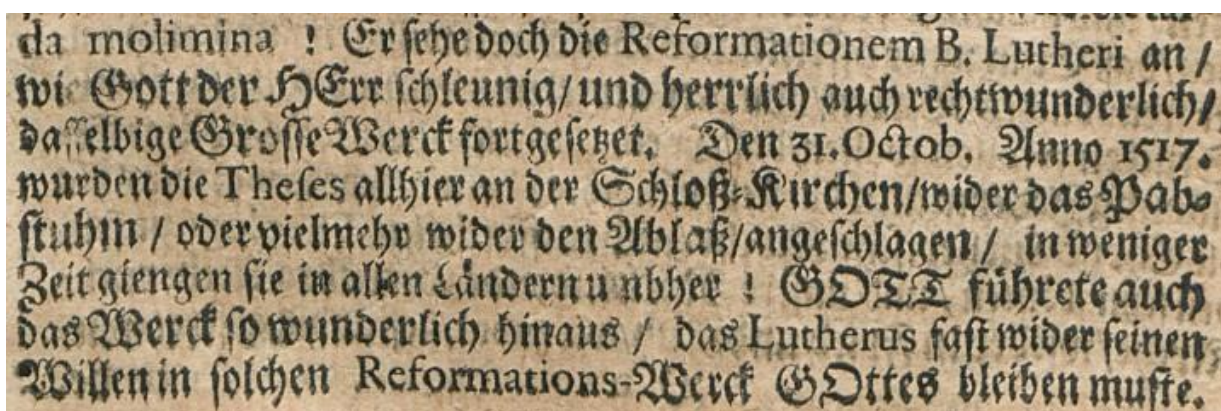 da molimina ! Er sehe doch die Reformationem B. Lutheri an /
wie Gott der HErr schleunig/ und herrlich auch recht wunderlich/
dasselbige Grosse Werck fortgesetzet. Den 31. Octob. Anno 1517.
wurden die Theses allhier an der Schloß-Kirchen/ wider das Pab-
stuhm / oder vielmehr wider den Ablaß/ angeschlagen / in weniger
Zeit giengen sie in allen Ländern u nbher ! GOTT führete auch
das Werck so wunderlich hinaus / das Lutherus fast wider seinen
Willen in solchen Reformations-Werck GOttes bleiben muste.